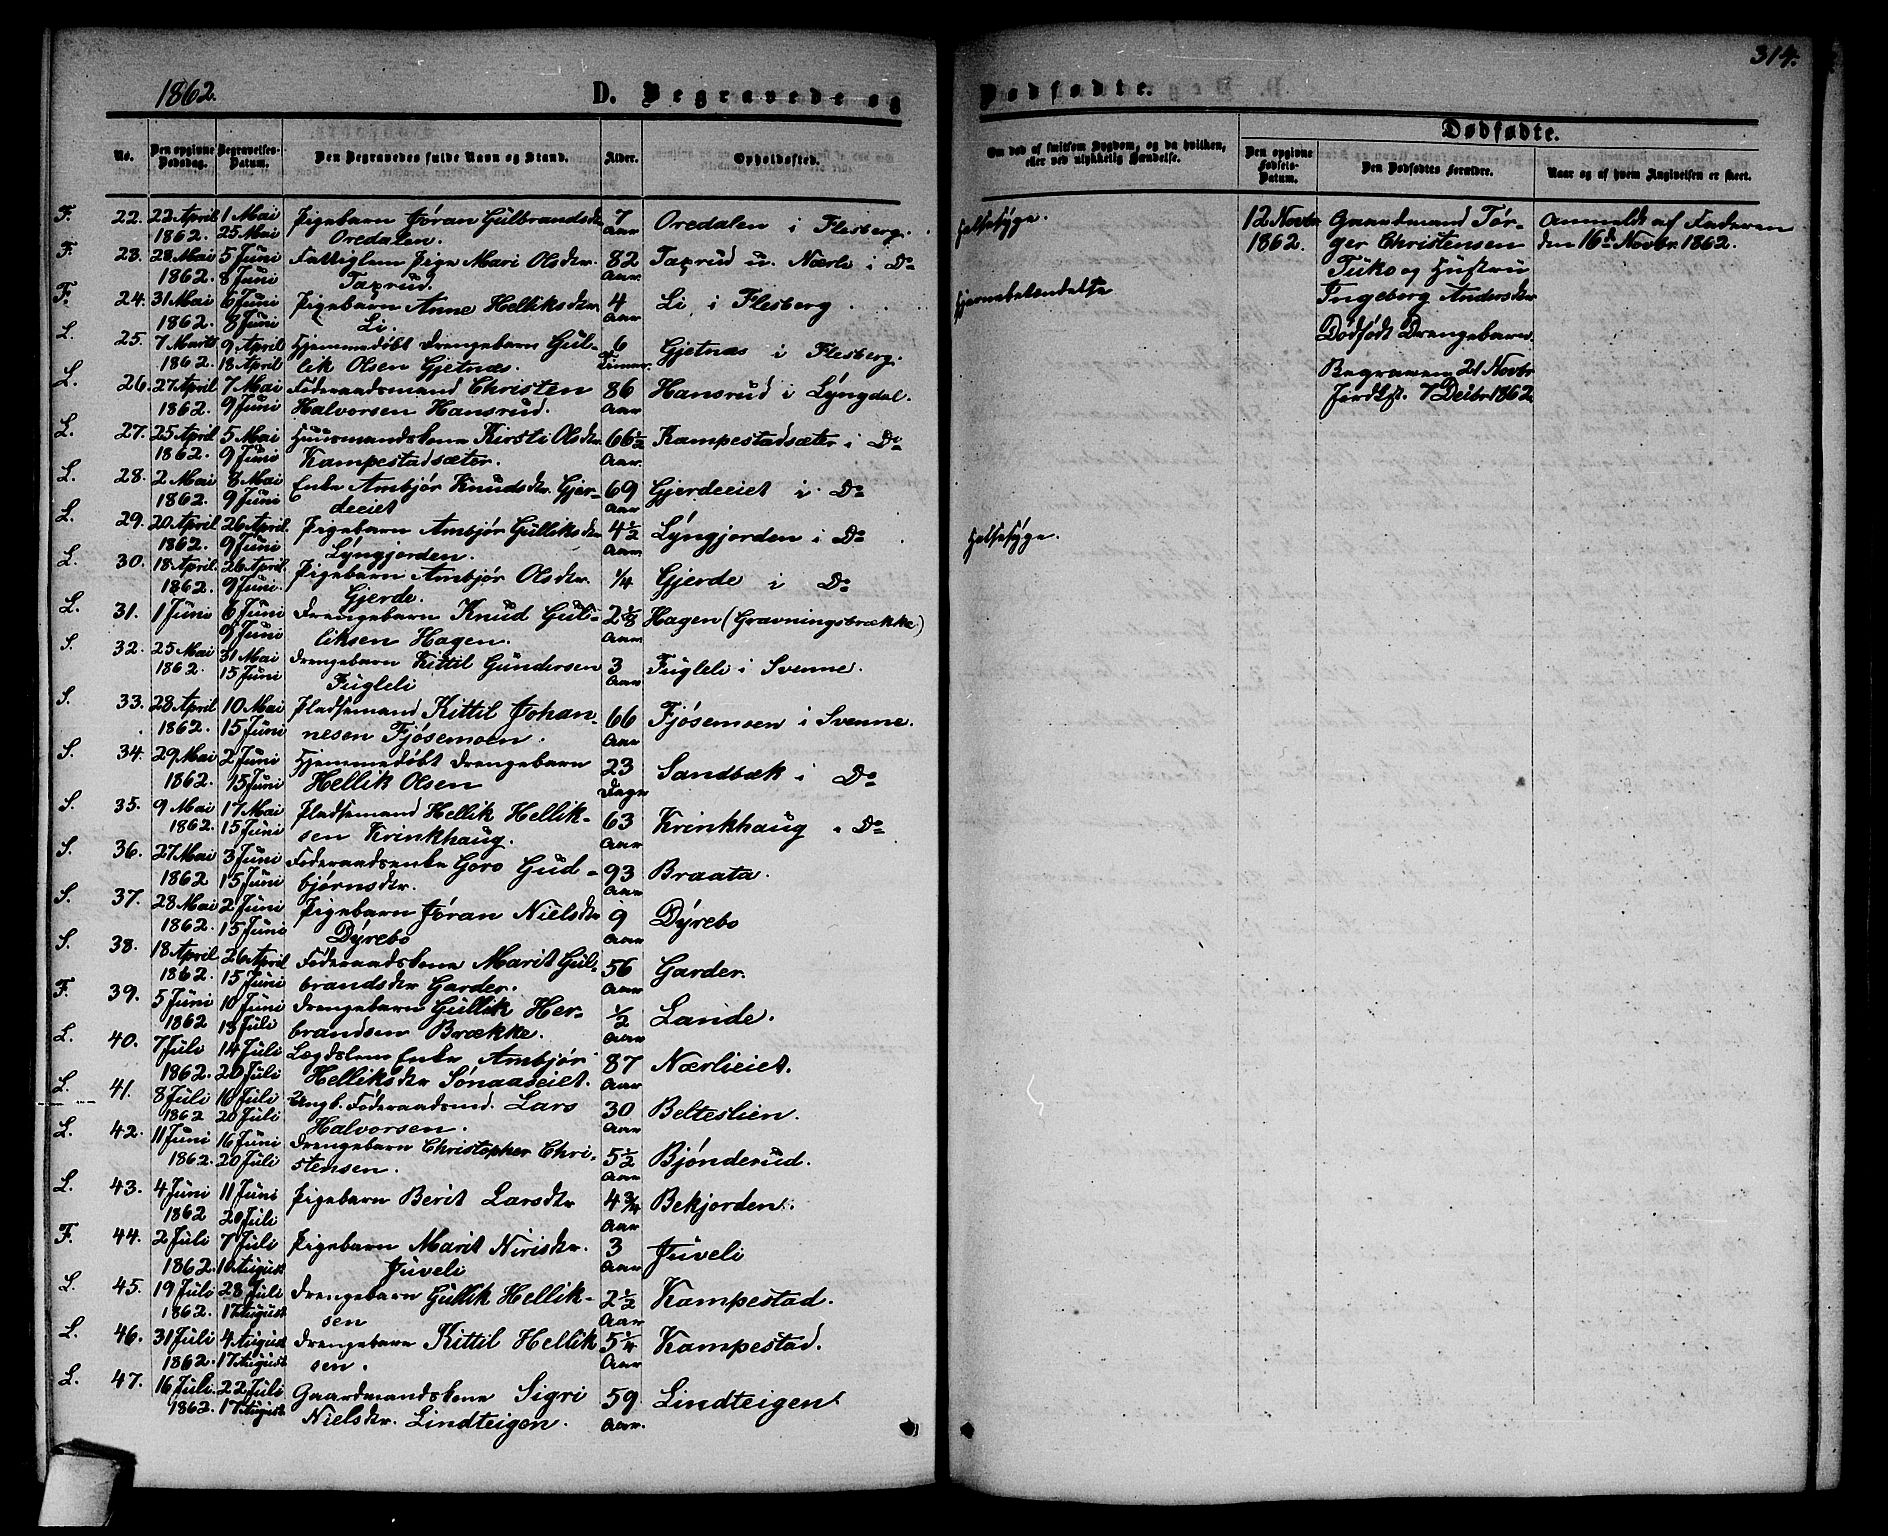 314.
1862.
D. Begravede og Dødfødte.
No.
Den opgivne Dødsdag.
Begravelses-Datum.
Den Begravedes fulde Navn og Stand.
Alder.
Opholdssted.
Om død af smitsom Sygdom, og da hvilken, eller ved ulykkelig Hændelse.
Dødfødte.
Den opgivne Fødsels-Datum.
Den Dødfødtes Forældre.
Naar og af hvem Angivelsen er skeet.
F. 22. 22 April 1 Mai Pigebarn Jóran Gulbrandsdr 7 Oredalen i Flesberg. Halsesyge.
1862. 25 Mai Oredalen. Aar
F. 23. 28 Mai 5 Juni Fattiglem Pige Mari Olsdr. 82 Taxrud u. Nærli i Do
1862 8 Juni Taxrud. Aar
F. 24. 31 Mai 6 Juni Pigebarn Anne Helliksdr. 4 Li, i Flesberg. Hjernebetændelse
1862. 8 Juni Li. Aar
L. 25. 7 Marts 9 April Hjemmedøbt Drengebarn Gul- 6 Gjetnæs i Flesberg.
1862 18 April lik Olsen Gjetnæs. Timer.
L. 26. 27 April 7 Mai Föderaadsmand Christen 86 Hansrud i Lyngdal.
1862 9 Juni Halvorsen Hansrud. Aar
L. 27. 25 April 5 Mai Huusmandskone Kirsti Olsdr. 66½ Kampestadsæter i Do
1862. 9 Juni Kampestadsæter. Aar.
L. 28. 2 Mai 8 Mai Enke Ambjór Knudsdr. Gjer- 69 Gjerdeeiet i Do
1862. 9 Juni deeiet Aar
L. 29. 20 April 26 April. Pigebarn Ambjór Gulliksdr 4½ Lyngjorden i Do Halsesyge.
1862. 9 Juni Lyngjorden. Aar.
L. 30. 18 April. 26 April. Pigebarn Ambjór Olsdr. ¼ Gjerde i Do
1862. 9 Juni Gjerde.
L. 31. 1 Juni 6 Juni Drengebarn Knud Gul- 2⅛ Hagen (Gravningsbrække)
9 Juni liksen Hagen. Aar.
S. 32. 25 Mai 31 Mai Drengebarn Kittil Gundersen 3 Fugleli i Svenne.
1862. 15 Juni Fugleli Aar
S. 33. 23 April 10 Mai Pladsemand Kittil Johan- 66 Fjósemoen i Svenne.
1862. 15 Juni nesen Fjósemoen. Aar
S. 34. 29 Mai 2 Juni Hjemmedøbt Drengebarn 23 Sandbæk i Do
1862. 15 Juni Hellik Olsen Dage
S. 35. 9 Mai 17 Mai Pladsemand Hellik Hellik- 63 Krinkhaug i Do
1862. 15 Juni sen Krinkhaug. Aar
S. 36. 27 Mai 3 Juni Föderaadsenke Goro Gud- 93 Braata.
1862 15 Juni bjørnsdr. Aar
S. 37. 28 Mai 2 Juni Pigebarn Jóran Nielsdr 9 Dyrebo
1862. 15 Juni Dyrebo Aar
S. 38. 18 April 26 April Föderaadskone Marit Gul- 56 Garder.
1862. 15 Juni brandsdr Garder. Aar
F. 39. 5 Juni 10 Juni Drengebarn Gullik Her- ½ Lande.
1862 13 Juli brandsen Brække. Aar
L. 40. 7 Juli 14 Juli Lægdslem Enke Ambjór 87 Nærlieiet.
1862. 20 Juli Helliksdr Sónaaseiet. Aar
L. 41. 8 Juli 16 Juli Ungk. Föderaadsmd. Lars 30 Belteslien.
1862 20 Juli Halvorsen. Aar
L. 42. 11 Juni 16 Juni Drengebarn Christopher Chri- 5½ Bjónderud.
1862. 20 Juli stensen. Aar
L. 43. 4 Juni 11 Juni Pigebarn Berit Larsdr 4¾ Bekjorden.
1862 20 Juli Aar
F. 44. 2 Juli 7 Juli Pigebarn Marit Nirisdr. 3 Juveli
1862. 10 August Juveli Aar
L. 45. 19 Juli 28 Juli Drengebarn Gullik Hellik- 2½ Kampestad.
1862. 17 August sen Aar
L. 46. 31 Juli 4 August Drengebarn Kittil Hellik 5¼ Kampestad.
1862. 17 August sen. Aar
L. 47. 16 Juli 22 Juli Gaardmandskone Sigri 59 Lindteigen
1862. 17 August Nielsdr. Lindteigen. Aar.
12 Novbr Gaardmand Tór- Anmeldt af Faderen
1862. ger Christensen den 16de Novbr. 1862.
Tuko og Hustru
Ingeborg Andersdr
Dödfödt Drengebarn
Begraven 21 Novbr
Jordkst. 7 Decbr 1862